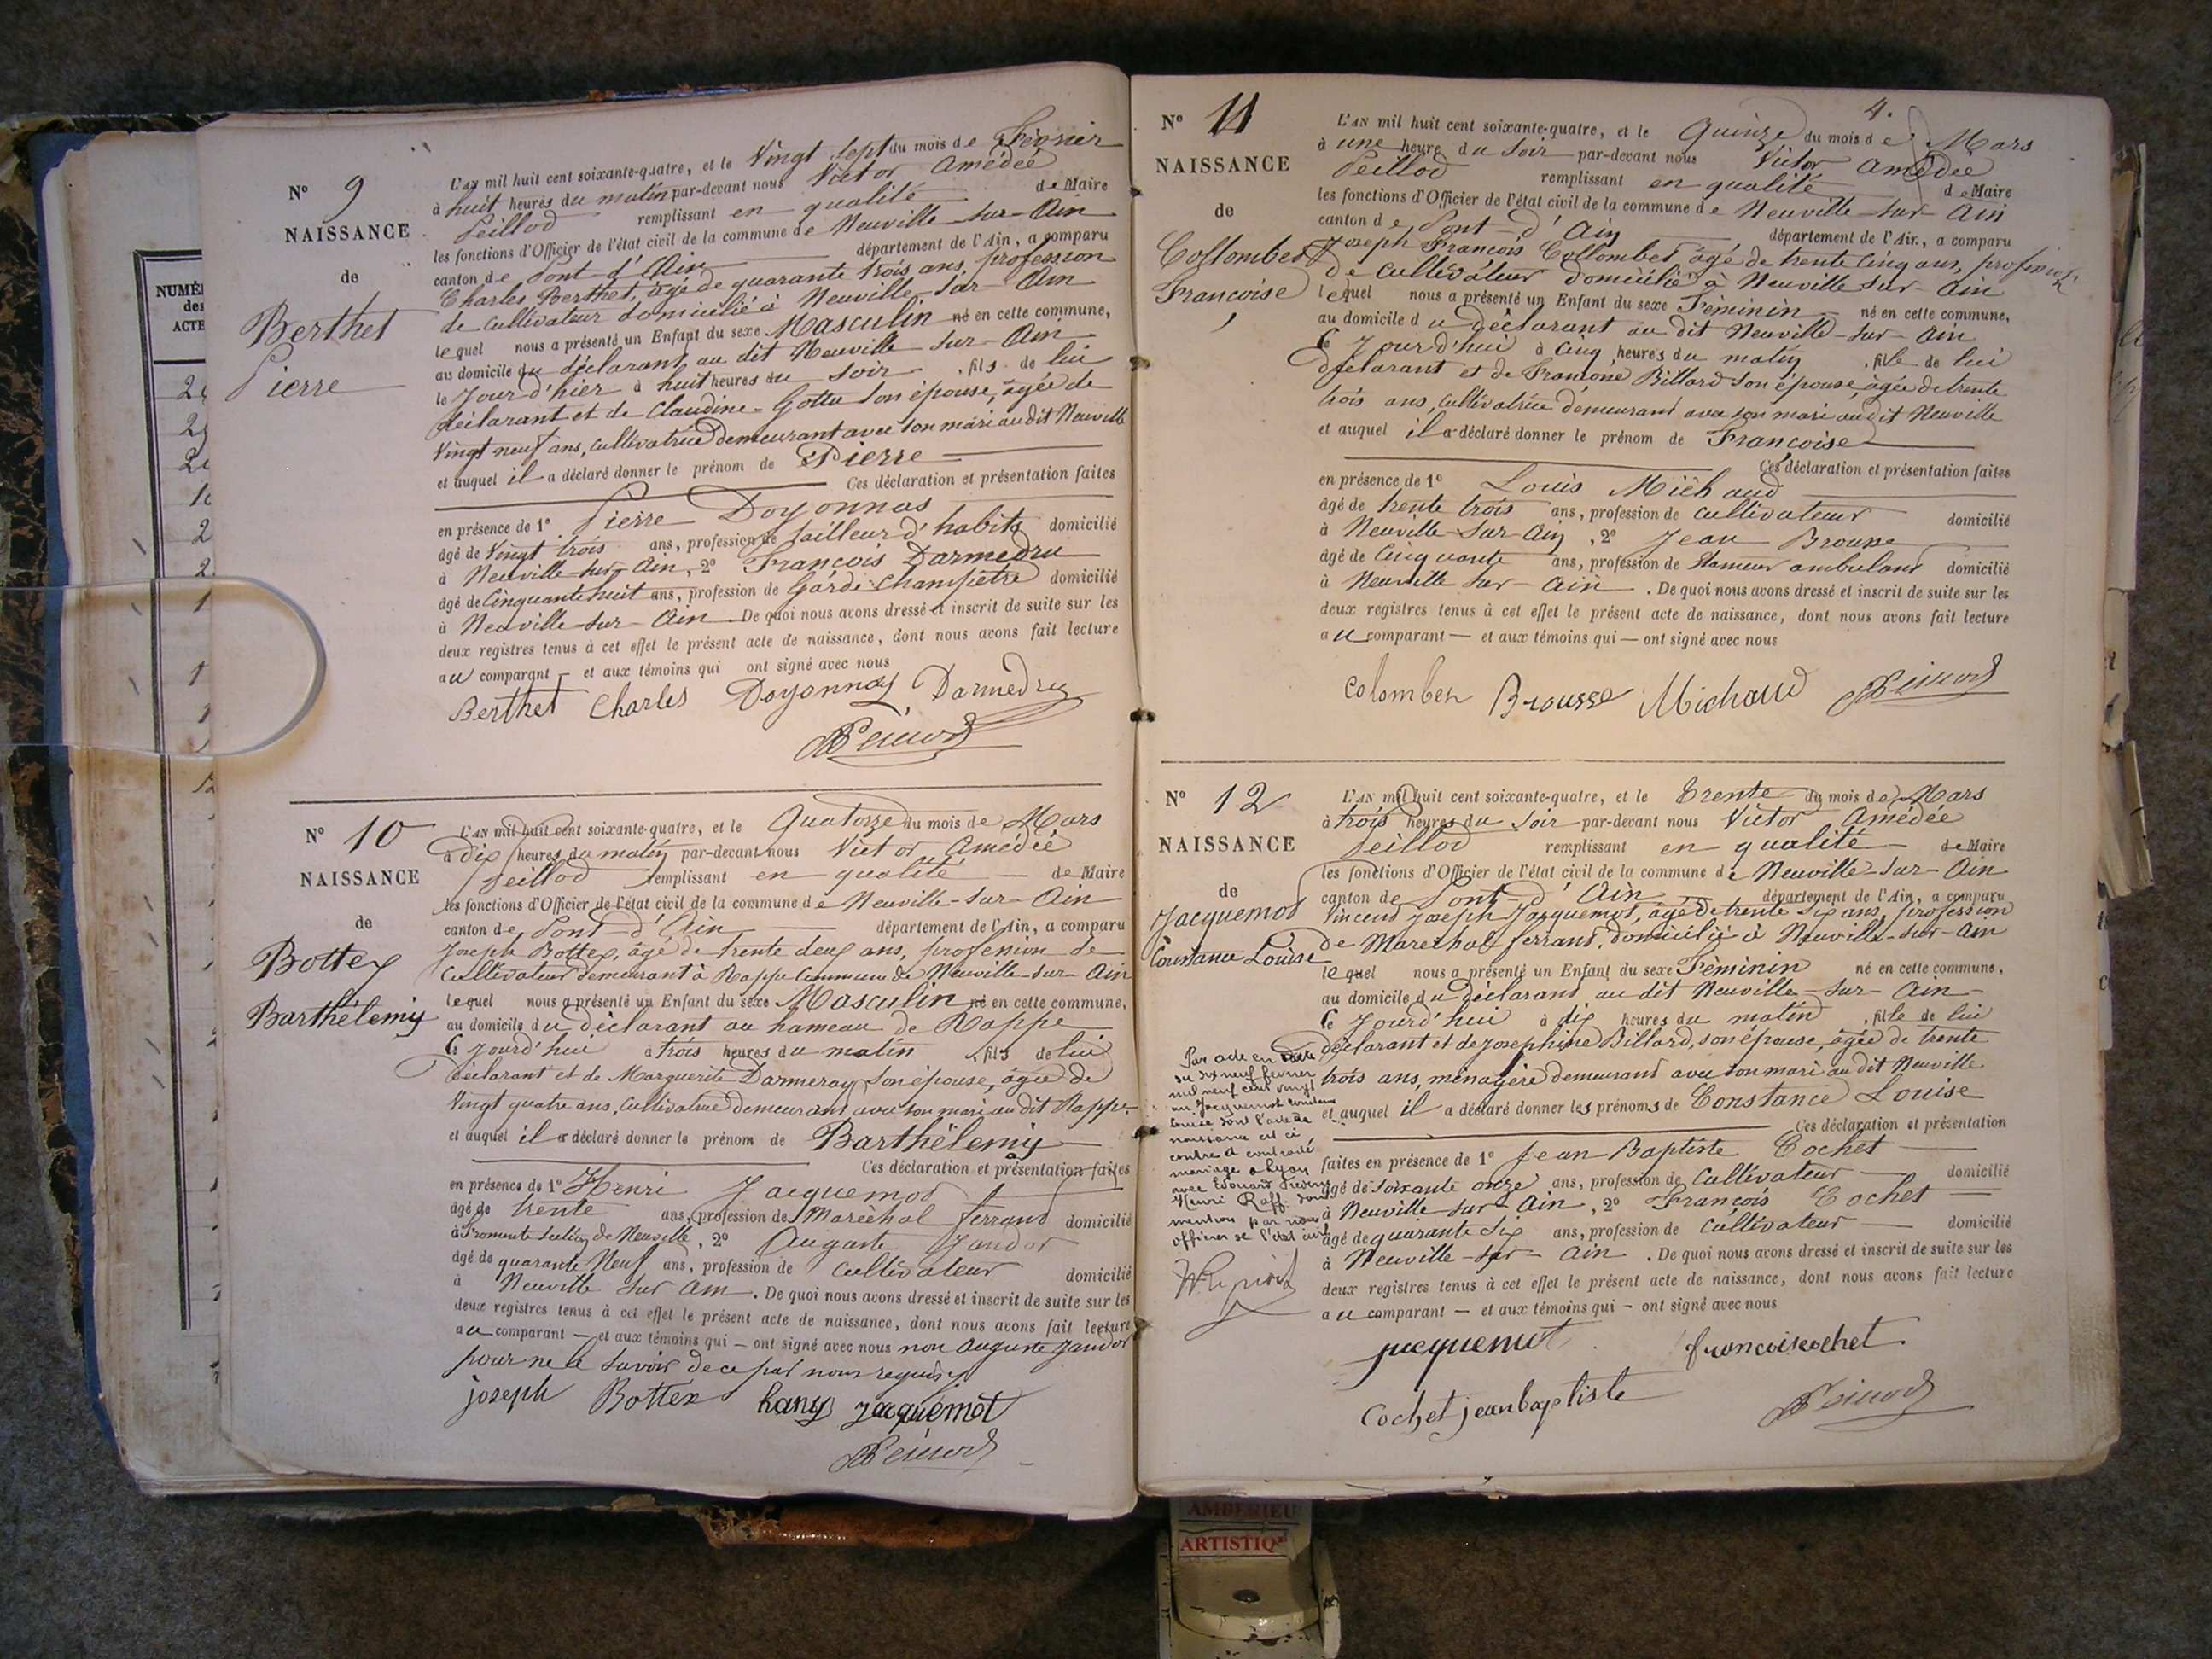 NUMÉ
des
ACTE
N° 9
NAISSANCE
de
Berthet
Pierre
L'AN mil huit cent soixante-quatre, et le Vingt Sept du mois de Février
à huit heures du matin par-devant nous Victor Amédée
Peillod remplissant en qualité de Maire
les fonctions d'Officier de l'état civil de la commune de Neuville-sur-Ain
canton de Pont-d'Ain département de l'Ain, a comparu
Charles Berthet, âgé de quarante trois ans, profession
de cultivateur domicilié à Neuville-sur-Ain
lequel nous a présenté un Enfant du sexe Masculin né en cette commune,
au domicile du déclarant au dit Neuville-sur-Ain
le Jour d'hier à huit heures du soir, fils de lui
déclarant et de Claudine Gottu son épouse, âgée de
Vingt neuf ans, cultivatrice demeurant avec son mari au dit Neuville
et auquel il a déclaré donner le prénom de Pierre
Ces déclaration et présentation faites
en présence de 1° Pierre Doyonnas
âgé de Vingt trois ans, profession de Tailleur d'habits domicilié
à Neuville-sur-Ain, 2° François Darmedru
âgé de Cinquante huit ans, profession de Garde-Champêtre domicilié
à Neuville-sur-Ain. De quoi nous avons dressé et inscrit de suite sur les
deux registres tenus à cet effet le présent acte de naissance, dont nous avons fait lecture
au comparant — et aux témoins qui ont signé avec nous
Berthet Charles Doyonnas Darmedru
N° 10
NAISSANCE
de
Bottex
Barthélemy
L'AN mil huit cent soixante-quatre, et le Quatorze du mois de Mars
à dix heures du matin par-devant nous Victor Amédée
Peillod remplissant en qualité de Maire
les fonctions d'Officier de l'état civil de la commune de Neuville-sur-Ain
canton de Pont-d'Ain département de l'Ain, a comparu
Joseph Bottex, âgé de trente deux ans, profession de
Cultivateur demeurant à Rappe Commune de Neuville-sur-Ain
lequel nous a présenté un Enfant du sexe Masculin né en cette commune,
au domicile du déclarant au hameau de Rappe
le jourd'hui à trois heures du matin, fils de lui
Déclarant et de Marguerite Darmeray son épouse, âgée de
Vingt quatre ans, Cultivatrice demeurant avec son mari au dit Rappe
et auquel il a déclaré donner le prénom de Barthélemy
Ces déclaration et présentation faites
en présence de 1° Henri Jacquemot
âgé de trente ans, profession de Maréchal ferrant domicilié
à Fromente de Neuville, 2° Auguste Jandot
âgé de quarante Neuf ans, profession de cultivateur domicilié
à Neuville sur Ain. De quoi nous avons dressé et inscrit de suite sur les
deux registres tenus à cet effet le présent acte de naissance, dont nous avons fait lecture
au comparant — et aux témoins qui — ont signé avec nous non Auguste Jandot
pour ne le savoir de ce par nous requis
joseph Bottex hany jacquemot
4.
N° 11
NAISSANCE
de
Collombet
Françoise
L'AN mil huit cent soixante-quatre, et le Quinze du mois de Mars
à une heure du soir par-devant nous Victor Amédée
Peillod remplissant en qualité de Maire
les fonctions d'Officier de l'état civil de la commune de Neuville-sur-Ain
canton de Pont-d'Ain département de l'Ain, a comparu
Joseph François Collombet âgé de trente Cinq ans, profession
de cultivateur domicilié à Neuville sur-Ain
lequel nous a présenté un Enfant du sexe Féminin né en cette commune,
au domicile du déclarant au dit Neuville-sur-Ain
le jourd'hui à Cinq heures du matin, fille de lui
déclarant et de Billard son épouse, âgée de trente
trois ans, cultivatrice demeurant avec son mari au dit Neuville
et auquel il a déclaré donner le prénom de Françoise
Ces déclaration et présentation faites
en présence de 1° Louis Michaud
âgé de trente trois ans, profession de cultivateur domicilié
à Neuville-sur-Ain, 2° Jean Brousse
âgé de Cinquante ans, profession de Etameur ambulant domicilié
à Neuville sur-Ain. De quoi nous avons dressé et inscrit de suite sur les
deux registres tenus à cet effet le présent acte de naissance, dont nous avons fait lecture
au comparant — et aux témoins qui — ont signé avec nous
Colomber Brousse Michaud
N° 12
NAISSANCE
de
Jacquemot
Constance Louise
L'AN mil huit cent soixante-quatre, et le Trente du mois de Mars
à trois heures du Soir par-devant nous Victor Amédée
Peillod remplissant en qualité de Maire
les fonctions d'Officier de l'état civil de la commune de Neuville-sur-Ain
canton de Pont-d'Ain département de l'Ain, a comparu
Vincent Joseph Jacquemot, âgé de trente Six ans, profession
de Marechal ferrant, domicilié à Neuville-sur-Ain
lequel nous a présenté un Enfant du sexe Féminin né en cette commune,
au domicile du déclarant au dit Neuville-sur-Ain
le Jourd'hui à dix heures du matin, fille de lui
déclarant et de Josephine Billard, son épouse, âgée de trente
trois ans, ménagère demeurant avec son mari au dit Neuville
et auquel il a déclaré donner les prénoms de Constance Louise
Ces déclaration et présentation
faites en présence de 1° Jean Baptiste Cochet
âgé de soixante onze ans, profession de Cultivateur domicilié
à Neuville-sur-Ain, 2° François Cochet
âgé de quarante Six ans, profession de Cultivateur domicilié
à Neuville-sur-Ain. De quoi nous avons dressé et inscrit de suite sur les
deux registres tenus à cet effet le présent acte de naissance, dont nous avons fait lecture
au comparant — et aux témoins qui — ont signé avec nous
jacquemot francoiscochet
Cochet jeanbaptiste
Par acte en date
du dix neuf février
mil neuf cent vingt
un Jacquemot Constance
Louise dont l'acte de
naissance est ci
contre a contracté
mariage à Lyon
avec Edouard
Henri Raff. dont
mention par nous
officier de l'état civil
AMBERIEU
ARTISTIQ